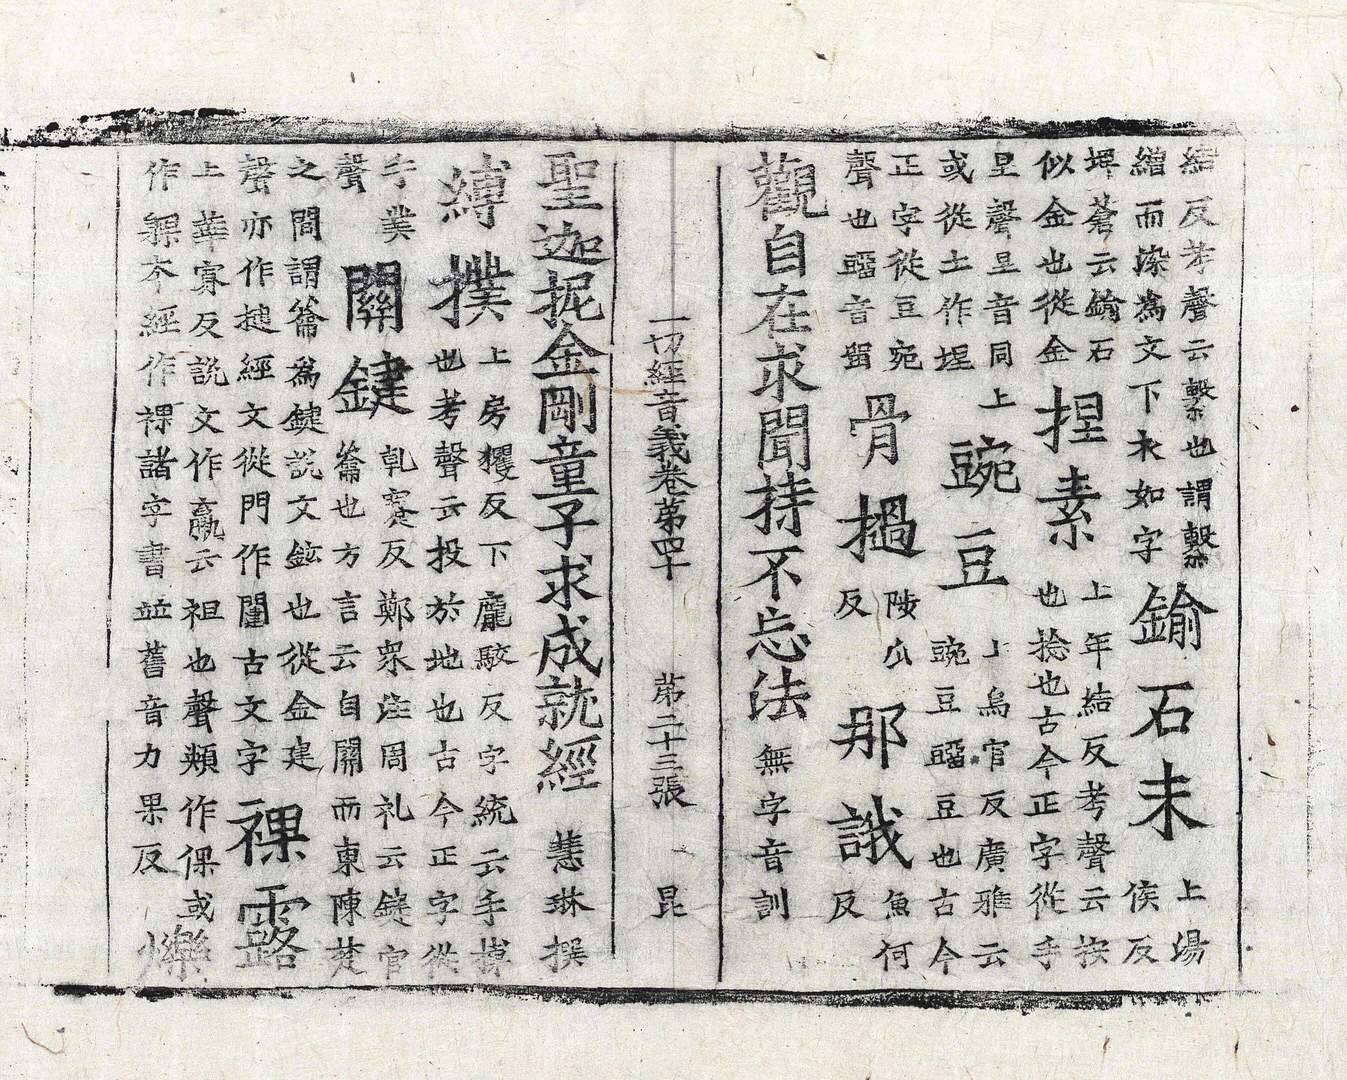 結反考聲云繫也謂繫
繒而染為文下衣如字
鍮石末
上湯
侯反
埤蒼云鍮石
似金也從金
捏素
上年結反考聲云按
也捻也古今正字從手
呈聲呈音同上
或從土作埕
豌豆
上烏官反廣雅云
豌豆䝁豆也古今
正字從豆宛
聲也䝁音留
骨檛
陟瓜
反
那誐
魚何
反
觀自在求聞持不忘法 無字音訓
一切經音義卷第四十 第二十三張 昆
聖迦抳金剛童子求成就經 慧琳撰
縛撲
上房玃反下龐駮反字統云手搏
也考聲云投於地也古今正字從
手業
聲
關鍵
乹蹇反鄭眾注周礼云鍵官
籥也方言云自關而東陳楚
之間謂籥為鍵說文鉉也從金建
聲亦作揵經文從門作闥古文字
裸露
上華寡反說文作臝云袒也聲類作倮或
作躶本經作裸諸字書並舊音力果反
爍